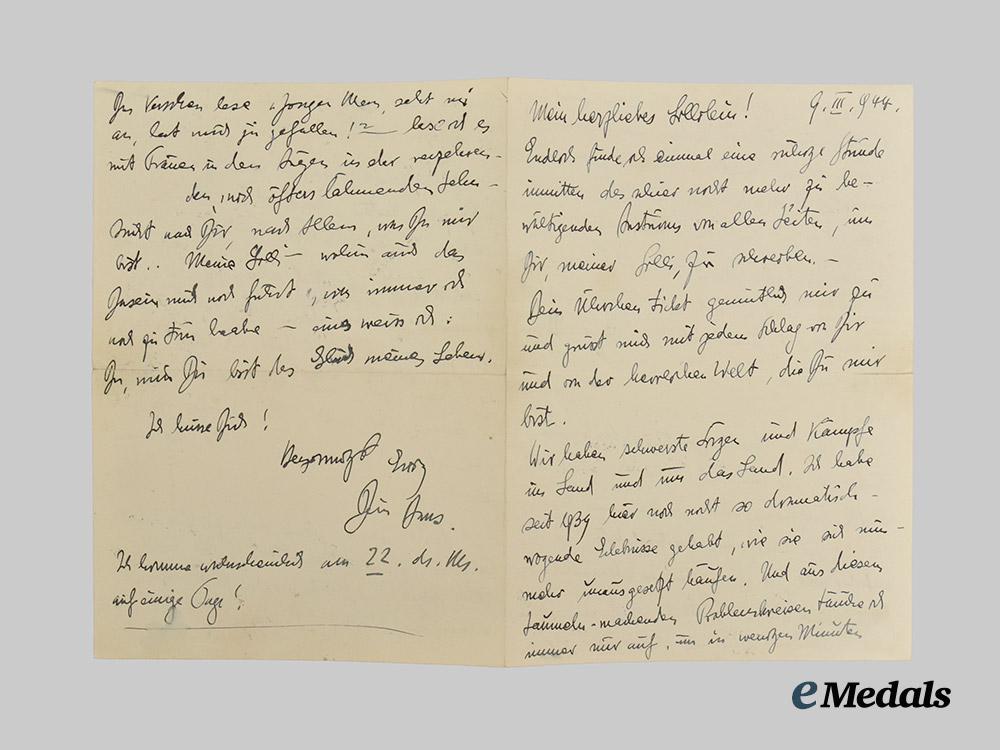 Mein herzliebes Lillilein! 9.III.944.
Endlich finde ich einmal eine ruhige Stunde
inmitten des hier nicht mehr zu be-
wältigenden Ansturms von allen Seiten, um
Dir, meiner Lilli, zu schreiben. –
Dein Ührchen tickt gemütlich mir zu
und grüsst mich mit jedem Schlag von Dir
und von der herrlichen Welt, die Du mir
bist.
Wir haben schwerste Sorgen und Kämpfe
im Land und um das Land. Ich habe
seit 1939 hier noch nicht so dramatisch-
wogende Erlebnisse gehabt, wie sie sich nun-
mehr unausgesetzt häufen. Und aus diesem
Taumeln-machenden Problemkreisen tauche ich
immer nur auf, um in wenigen Minuten
lese
an, hat mich zu gefallen! – lese ich es
mit Tränen in den Augen in der verzehren-
den, noch öfters lähmenden Sehn-
sucht nach Dir, nach Allem, was Du mir
bist.. Meine Lilli – wohin auch das
Dasein mich noch führt, was immer ich
noch zu tun habe – eines weiss ich:
Du, nur Du bist das Glück meines Lebens.
Ich küsse Dich!
Ewig
Dein
Ich komme wahrscheinlich am 22. ds. Mts.
auf einige Tage!
e Medals